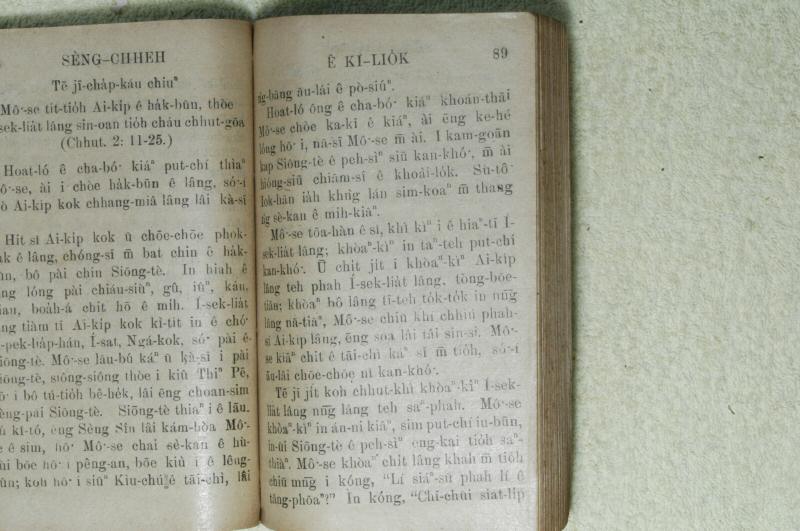 SÈNG-CHHEH
Tē jī-cha̍p-káu chiuⁿ
Mô͘-se tit-tio̍h Ai-ki̍p ê ha̍k-būn, thòe
sek-lia̍t lâng sin-oan tio̍h cháu chhut-gōa
(Chhut. 2: 11-25.)
Hoat-ló ê cha-bó͘ kiáⁿ put-chí thiàⁿ
ô͘-se, ài i chòe ha̍k-būn ê lâng, só͘-í
Ai-ki̍p kok chhang-miâ lâng lâi kà-sī
Hit sî Ai-ki̍p kok ū chōe-chōe pho̍k-
ha̍k ê lâng, chóng-sī m̄ bat chin ê ha̍k-
būn, bô pài chin Siōng-tè. In hiah ê
lâng lóng pài chiáu-siùⁿ, gû, iûⁿ, káu,
niau, boa̍h-á chit hō ê mih. Í-sek-lia̍t
lâng tiàm tī Ai-ki̍p kok kì-tit in ê chó͘
A-pek-lia̍p-hán, Í-sat, Ngá-kok, só͘ pài ê
Siōng-tè. Mô͘-se lāu-bú káⁿ ū kà-sī i pài
Siōng-tè, siông-siông thòe i kiû Thiⁿ Pē,
hō͘ i bô tú-tio̍h bê-he̍k, lâi êng choan-sim
chèng-pài Siōng-tè. Siōng-tè thiaⁿ i ê lāu.
bú kî-tó, èng Sèng Sîn lâi kám-hòa Mô͘-
se ê sim, hō͘ Mô͘-se chai sè-kan ê hù-
kùi bóe hō͘ i pêng-an, bōe kiù i ê lêng-
hûn; koh hō͘ i siūⁿ Kiu-chú ê tāi-chì, lâi
Ê KÌ-LIO̍K
89
ǹg-bāng āu-lâi ê pò-siúⁿ.
Hoat-ló ông ê cha-bó͘ kiáⁿ khoán-thāi
Mô͘-se chòe ka-kī ê kiáⁿ, ài ēng ke-hé
lóng hō͘ i, nā-sī Mô͘-se m̄ ài. I kam-goān
kap Siōng-tè ê peh-sìⁿ siū kan-khó͘, m̄ ài
hióng-siū chiām-sî ê khoài-lo̍k. Sù-tô͘
Lok-hān ia̍h khǹg lán sim-koaⁿ m̄ thang
ǹg sè-kan ê mih-kiāⁿ.
Mô͘-se tōa-hàn ê sî, khì kìⁿ i ê hiaⁿ-tī Í-
sek-lia̍t lâng; khòaⁿ-kìⁿ in taⁿ-teh put-chí
kan-khó͘. Ū chi̍t ji̍t i khòaⁿ-kìⁿ Ai-ki̍p
lâng teh phah Í-sek-lia̍t lâng, tòng-bōe-
tiâu; khòaⁿ bô lâng tī-teh to̍k-to̍k in nn̄g
lâng nā-tiāⁿ, Mô͘-se chiū khí chhiú phah-
sí Ai-ki̍p lâng, ēng soa lâi tâi sin-si. Mô͘-
se kiâⁿ chit ê tāi-chì káⁿ sī m̄ tio̍h, só͘-í
āu-lâi chōe-chōe nî kan-khó͘.
Tē jī ji̍t koh chhut-khì khòaⁿ-kìⁿ Í-sek-
lia̍t lâng nn̄g lâng teh saⁿ-phah. Mô͘-se
khòaⁿ-kìⁿ in án-ni kiâⁿ, sim put-chí iu-būn,
in-ūi Siōng-tè ê peh-sìⁿ eng-kai tio̍h saⁿ-
thiàⁿ. Mô͘-se khòaⁿ chi̍t lâng khah m̄ tio̍h
chiū mn̄g i kóng, “Lí siáⁿ-sū phah lí ê
tâng-phōaⁿ?” In kóng, “Chī-chūi siat-li̍p